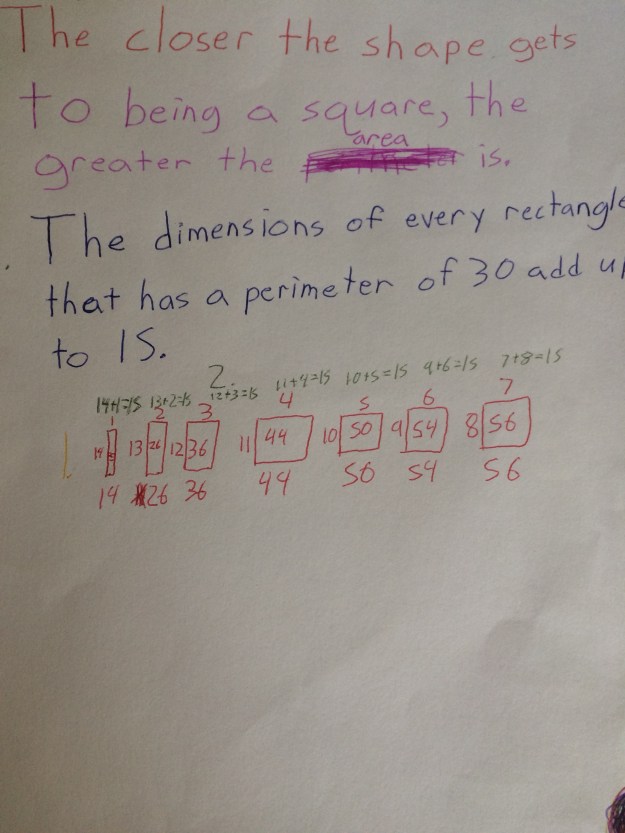 The closer the shape gets
to being a square, the
area
greater the is.
The dimensions of every rectangle
that has a perimeter of 30 add up
to 15.
2.
14+1=15 13+2=15 12+3=15 11+4=15 10+5=15 9+6=15 7+8=15
1 2 3 4 5 6 7
14 13 26 12 36 11 44 10 50 9 54 8 56
14 26 36 44 50 54 56